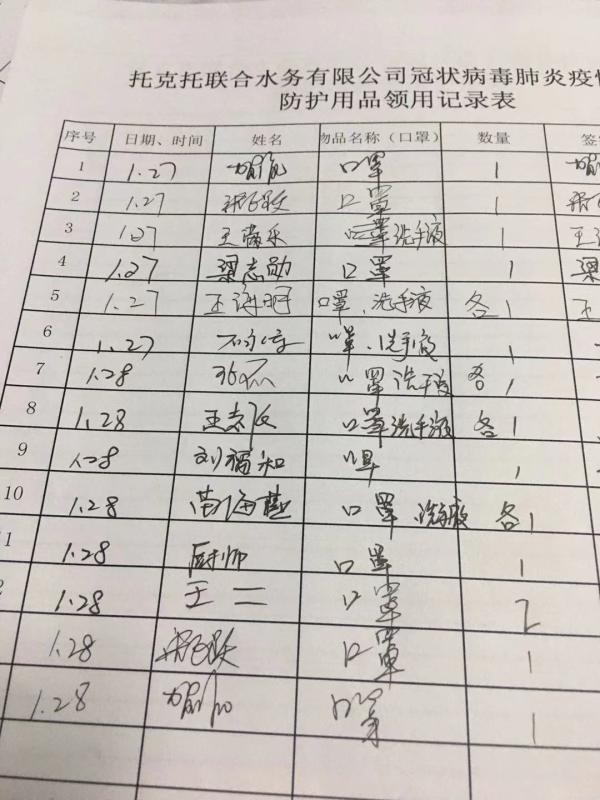 托克托联合水务有限公司冠状病毒肺炎疫
防护用品领用记录表
序号 日期、时间 姓名 物品名称（口罩） 数量
1 1.27 口罩 1
2 1.27 口罩 1
3 1.27 王 口罩洗手液 1 王
4 1.27 梁志勋 口罩 1 梁
5 1.27 王 口罩、洗手液 各1 王
6 1.27 口罩、洗手液 1
7 1.28 口罩洗手液 各1
8 1.28 王志 口罩洗手液 各1
9 1.28 刘福知 口罩 1
10 1.28 口罩、洗手液 各1
1 1.28 厨师 口罩 1
2 1.28 王二 口罩 2
1.28 口罩 1
1.28 口罩 1